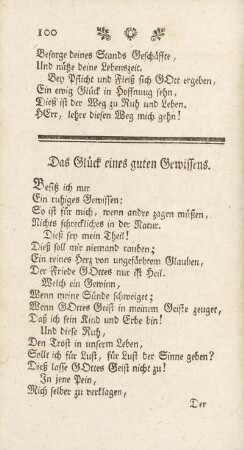 100
Besorge deines Stands Geschäffte,
Und nütze deine Lebenszeit.
Bey Pflicht und Fleiß sich GOtt ergeben,
Ein ewig Glück in Hoffnung sehn,
Dieß ist der Weg zu Ruh und Leben.
HErr, lehre diesen Weg mich gehn!
Das Glück eines guten Gewissens.
Besitz ich nur
Ein ruhiges Gewissen:
So ist für mich, wenn andre zagen müßen,
Nichts schreckliches in der Natur.
Dieß sey mein Theil!
Dieß soll mir niemand rauben;
Ein reines Herz von ungefärbtem Glauben,
Der Friede GOttes nur ist Heil.
Welch ein Gewinn,
Wenn meine Sünde schweiget;
Wenn GOttes Geist in meinem Geiste zeuget,
Daß ich sein Kind und Erbe bin!
Und diese Ruh,
Den Trost in unserm Leben,
Sollt ich für Lust, für Lust der Sinne geben?
Dieß lasse GOttes Geist nicht zu!
In jene Pein,
Mich selber zu verklagen,
Der